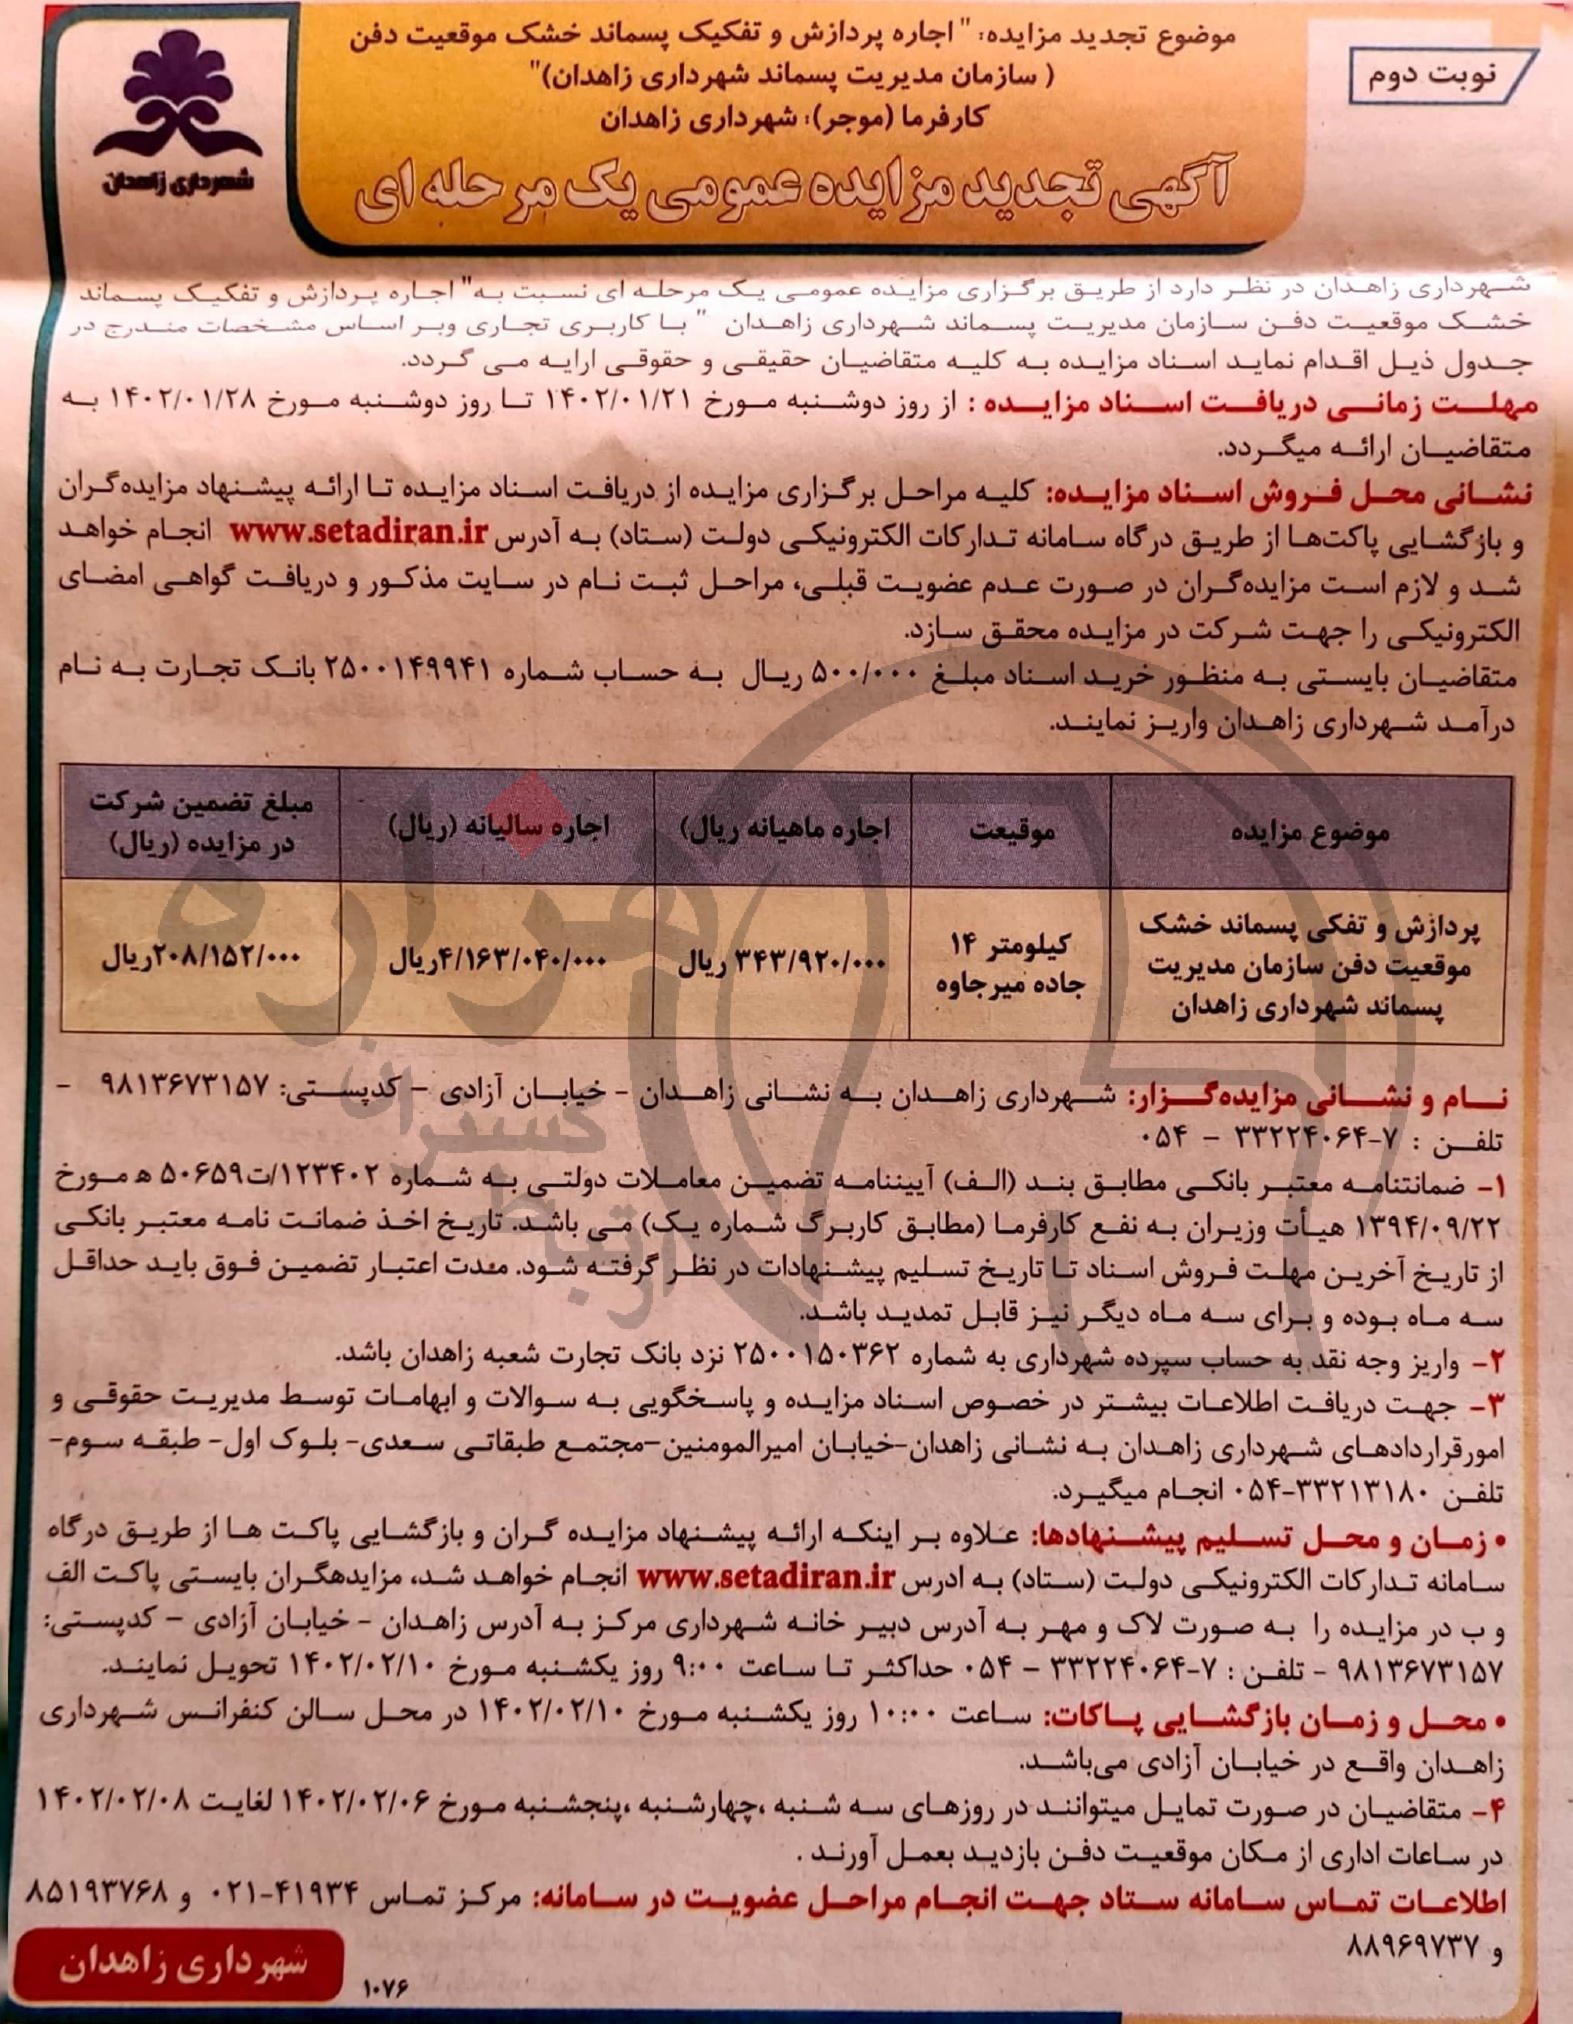 نوبت دوم
موضوع تجدید مزایده: " اجاره پردازش و تفکیک پسماند خشک موقعیت دفن
( سازمان مدیریت پسماند شهرداری زاهدان)"
کارفرما (موجر): شهرداری زاهدان
آگهی تجدید مزایده عمومی یک مرحله ای
شهرداری زاهدان
شهرداری زاهدان در نظر دارد از طریق برگزاری مزایده عمومی یک مرحله ای نسبت به" اجاره پردازش و تفکیک پسماند
خشک موقعیت دفن سازمان مدیریت پسماند شهرداری زاهدان " با کاربری تجاری وبر اساس مشخصات مندرج در
جدول ذیل اقدام نماید اسناد مزایده به کلیه متقاضیان حقیقی و حقوقی ارایه می گردد.
مهلت زمانی دریافت اسناد مزایده : از روز دوشنبه مورخ ۱۴۰۲/۰۱/۲۱ تا روز دوشنبه مورخ ۱۴۰۲/۰۱/۲۸ به
متقاضیان ارائه میگردد.
نشانی محل فروش اسناد مزایده: کلیه مراحل برگزاری مزایده از دریافت اسناد مزایده تا ارائه پیشنهاد مزایده‌گران
و بازگشایی پاکت‌ها از طریق درگاه سامانه تدارکات الکترونیکی دولت (ستاد) به آدرس www.setadiran.ir انجام خواهد
شد و لازم است مزایده‌گران در صورت عدم عضویت قبلی، مراحل ثبت نام در سایت مذکور و دریافت گواهی امضای
الکترونیکی را جهت شرکت در مزایده محقق سازد.
متقاضیان بایستی به منظور خرید اسناد مبلغ ۵۰۰/۰۰۰ ریال به حساب شماره ۲۵۰۰۱۴۹۹۴۱ بانک تجارت به نام
درآمد شهرداری زاهدان واریز نمایند.
موضوع مزایده
موقیعت
اجاره ماهیانه ریال)
اجاره سالیانه (ریال)
مبلغ تضمین شرکت
در مزایده (ریال)
پردازش و تفکی پسماند خشک
موقعیت دفن سازمان مدیریت
پسماند شهرداری زاهدان
کیلومتر ۱۴
جاده میرجاوه
۳۴۳/۹۲۰/۰۰۰ ریال
۴/۱۶۳/۰۴۰/۰۰۰ریال
۲۰۸/۱۵۲/۰۰۰ریال
نام و نشانی مزایده‌گزار: شهرداری زاهدان به نشانی زاهدان - خیابان آزادی – کدپستی: ۹۸۱۳۶۷۳۱۵۷ -
تلفن : ۷-۳۳۲۲۴۰۶۴ – ۰۵۴
۱- ضمانتنامه معتبر بانکی مطابق بند (الف) آییننامه تضمین معاملات دولتی به شماره ۱۲۳۴۰۲/ت۵۰۶۵۹ ه مورخ
۱۳۹۴/۰۹/۲۲ هیأت وزیران به نفع کارفرما (مطابق کاربرگ شماره یک) می باشد. تاریخ اخذ ضمانت نامه معتبر بانکی
از تاریخ آخرین مهلت فروش اسناد تا تاریخ تسلیم پیشنهادات در نظر گرفته شود. مدت اعتبار تضمین فوق باید حداقل
سه ماه بوده و برای سه ماه دیگر نیز قابل تمدید باشد.
۲- واریز وجه نقد به حساب سپرده شهرداری به شماره ۲۵۰۰۱۵۰۳۶۲ نزد بانک تجارت شعبه زاهدان باشد.
۳- جهت دریافت اطلاعات بیشتر در خصوص اسناد مزایده و پاسخگویی به سوالات و ابهامات توسط مدیریت حقوقی و
امورقراردادهای شهرداری زاهدان به نشانی زاهدان-خیابان امیرالمومنین-مجتمع طبقاتی سعدی- بلوک اول- طبقه سوم-
تلفن ۳۳۲۱۳۱۸۰-۰۵۴ انجام میگیرد.
• زمان و محل تسلیم پیشنهادها: علاوه بر اینکه ارائه پیشنهاد مزایده گران و بازگشایی پاکت ها از طریق درگاه
سامانه تدارکات الکترونیکی دولت (ستاد) به ادرس www.setadiran.ir انجام خواهد شد، مزایدهگران بایستی پاکت الف
و ب در مزایده را به صورت لاک و مهر به آدرس دبیر خانه شهرداری مرکز به آدرس زاهدان - خیابان آزادی – کدپستی:
۹۸۱۳۶۷۳۱۵۷ - تلفن : ۷-۳۳۲۲۴۰۶۴ – ۰۵۴ حداکثر تا ساعت ۹:۰۰ روز یکشنبه مورخ ۱۴۰۲/۰۲/۱۰ تحویل نمایند.
• محل و زمان بازگشایی پاکات: ساعت ۱۰:۰۰ روز یکشنبه مورخ ۱۴۰۲/۰۲/۱۰ در محل سالن کنفرانس شهرداری
زاهدان واقع در خیابان آزادی می‌باشد.
۴- متقاضیان در صورت تمایل میتوانند در روزهای سه شنبه ،چهارشنبه ،پنجشنبه مورخ ۱۴۰۲/۰۲/۰۶ لغایت ۱۴۰۲/۰۲/۰۸
در ساعات اداری از مکان موقعیت دفن بازدید بعمل آورند .
اطلاعات تماس سامانه ستاد جهت انجام مراحل عضویت در سامانه: مرکز تماس ۴۱۹۳۴-۰۲۱ و ۸۵۱۹۳۷۶۸
و ۸۸۹۶۹۷۳۷
شهرداری زاهدان
۱۰۷۶
هزاره
گستران
ارتباط